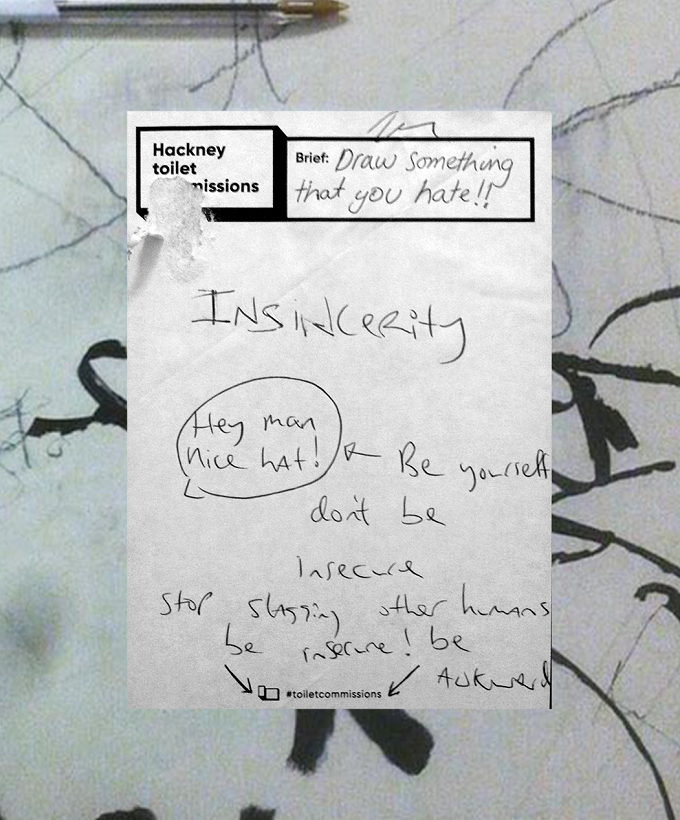 Hackney
toilet
missions
Brief: Draw something
that you hate!!
INSiNCeRity
Hey man
nice hAt!
Be yourself
don't be
insecure
Stop slagging other humans
be insecure! be
AwKward
#toiletcommissions